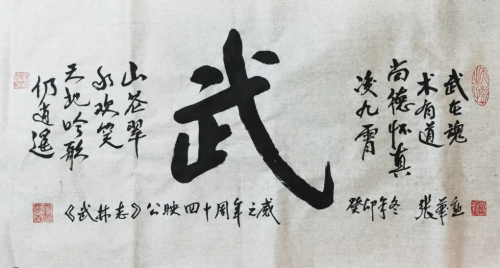 武在魂
术有道
尚德怀真
凌九霄
武
山苍翠
水欢笑
天地吟歌
仍逍遥
《武林志》公映四十周年之感
癸卯年冬 张华